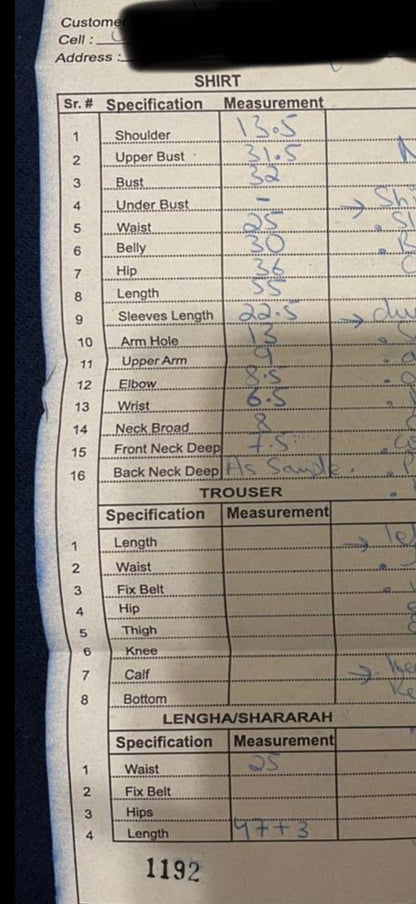 Customer
Cell :
Address :
SHIRT
Sr. # Specification Measurement
1 Shoulder 13.5
2 Upper Bust 31.5
3 Bust 32
4 Under Bust - → Sh
5 Waist 25
6 Belly 30
7 Hip 36
8 Length 55
9 Sleeves Length 22.5 →
10 Arm Hole 13
11 Upper Arm 9
12 Elbow 8.5
13 Wrist 6.5
14 Neck Broad 8
15 Front Neck Deep 7.5
16 Back Neck Deep As Sample.
TROUSER
Specification Measurement
1 Length →
2 Waist
3 Fix Belt
4 Hip
5 Thigh
6 Knee
7 Calf →
8 Bottom
LENGHA/SHARARAH
Specification Measurement
1 Waist 25
2 Fix Belt
3 Hips
4 Length 47+3
1192